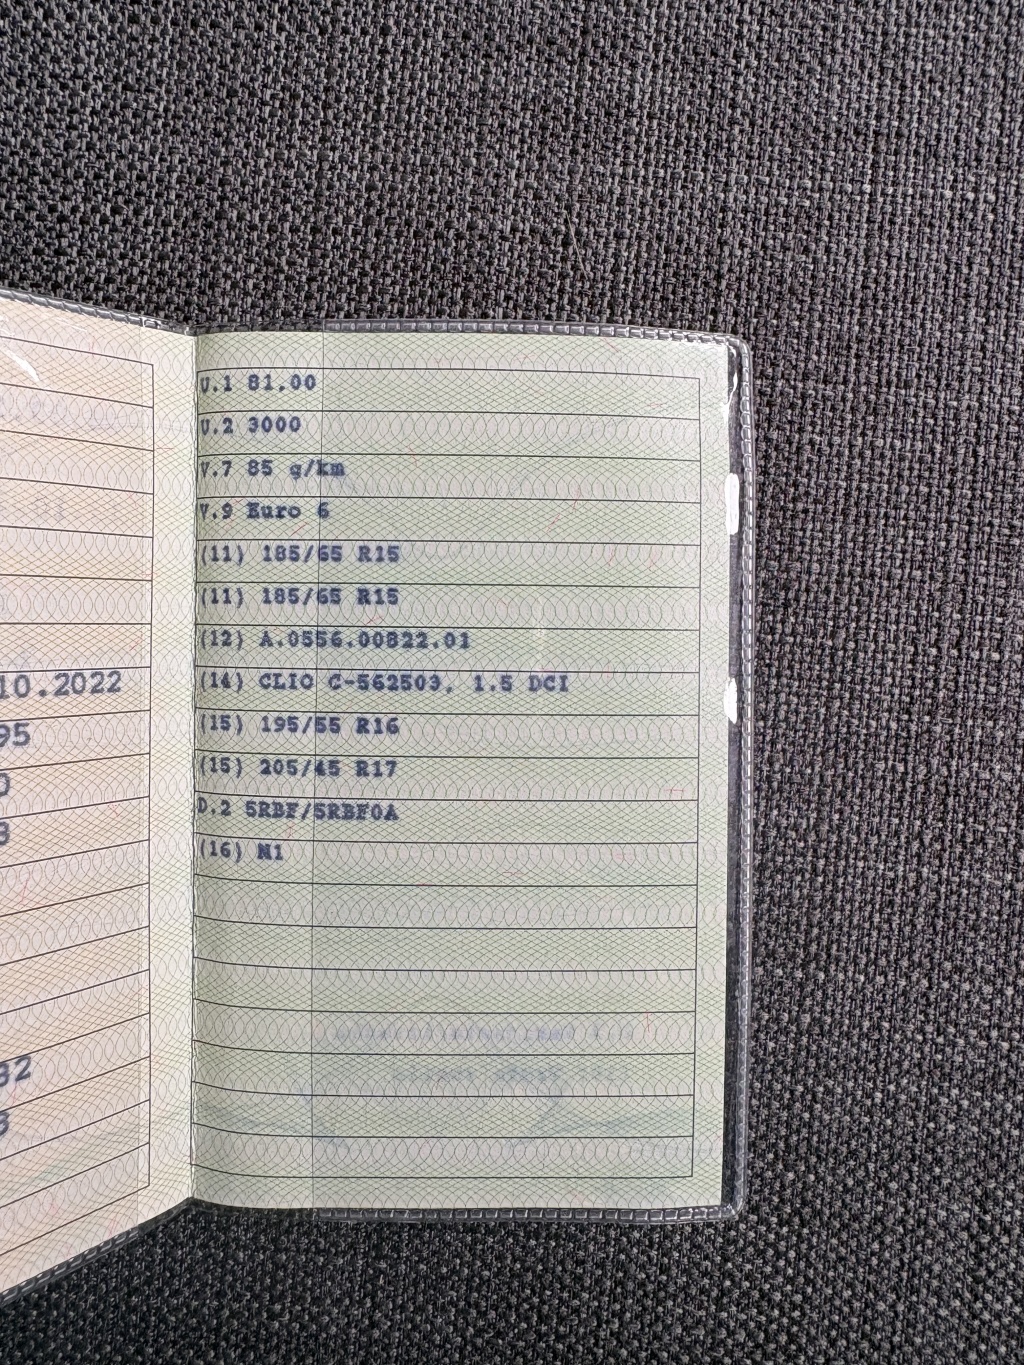 10.2022
95
0
3
32
3
U.1 81.00
U.2 3000
V.7 85 g/km
V.9 Euro 6
(11) 185/65 R15
(11) 185/65 R15
(12) A.0556.00822.01
(14) CLIO C-562503, 1.5 DCI
(15) 195/55 R16
(15) 205/45 R17
D.2 5RBF/5RBF0A
(16) N1